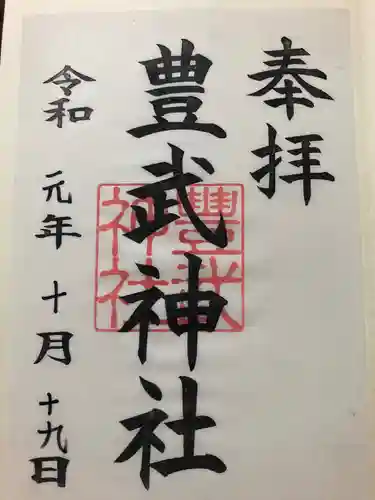 奉拝
豊武神社
豊武
神社
令和元年十月十九日